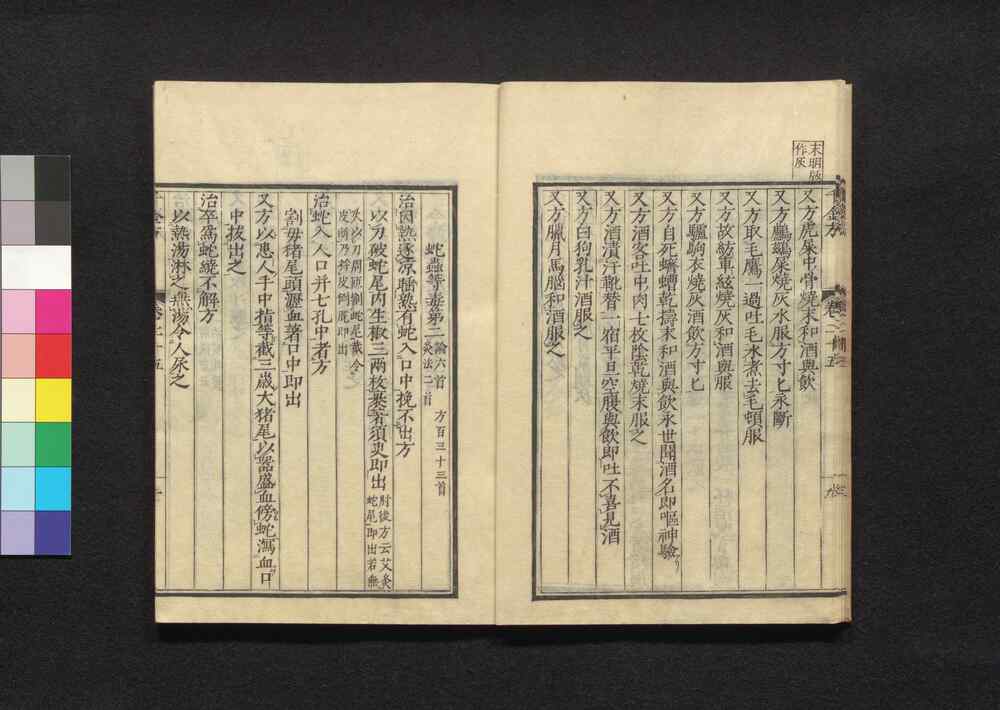 末明版
作灰
又方虎屎中骨燒末和酒與飲
又方鸕鷀屎燒灰水服方寸匕永斷
又方取毛鷹一過吐毛水煮去毛頓服
又方故紡車絃燒灰和酒與服
又方驢駒衣燒灰酒飲方寸匕
又方自死蠐螬乾擣末和酒與飲永世聞酒名即嘔神驗
又方酒客吐中肉七枚陰乾燒末服之
又方酒漬汗靴替一宿平旦空腹與飲即吐不喜見酒
又方白狗乳汁酒服之
又方臘月馬腦和酒服之
蛇蟲等毒第二 論六首 灸法二首 方百三十三首
治因熱逐涼睡熟有蛇入口中挽不出方
以刀破蛇尾內生椒三兩枚裹著須臾即出 肘後方云艾灸蛇尾即出若無
火以刀周匝割蛇尾截令皮斷乃捋皮倒脫即出
治蛇入人口并七孔中者方
割母猪尾頭瀝血著口中即出
又方以患人手中指等截三歲大猪尾以器盛血傍蛇瀉血口
中拔出之
治卒為蛇繞不解方
以熱湯淋之無湯令人尿之